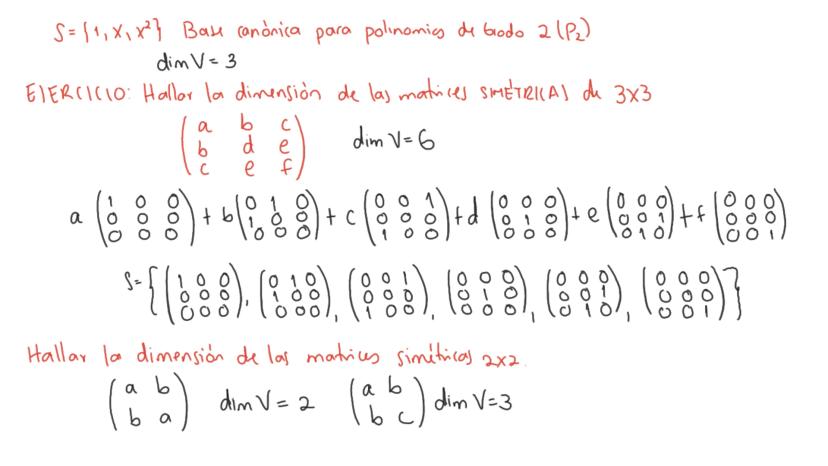 S = {1, x, x²} Base canónica para polinomios de Grado 2 (P₂)
dim V = 3
EJERCICIO: Hallar la dimensión de las matrices SIMÉTRICAS de 3x3
(a b c
b d e
c e f) dim V = 6
a (1 0 0
0 0 0
0 0 0) + b (0 1 0
1 0 0
0 0 0) + c (0 0 1
0 0 0
1 0 0) + d (0 0 0
0 1 0
0 0 0) + e (0 0 0
0 0 1
0 1 0) + f (0 0 0
0 0 0
0 0 1)
S = {(1 0 0
0 0 0
0 0 0), (0 1 0
1 0 0
0 0 0), (0 0 1
0 0 0
1 0 0), (0 0 0
0 1 0
0 0 0), (0 0 0
0 0 1
0 1 0), (0 0 0
0 0 0
0 0 1)}
Hallar la dimensión de las matrices siméticas 2x2.
(a b
b a) dim V = 2 (a b
b c) dim V = 3